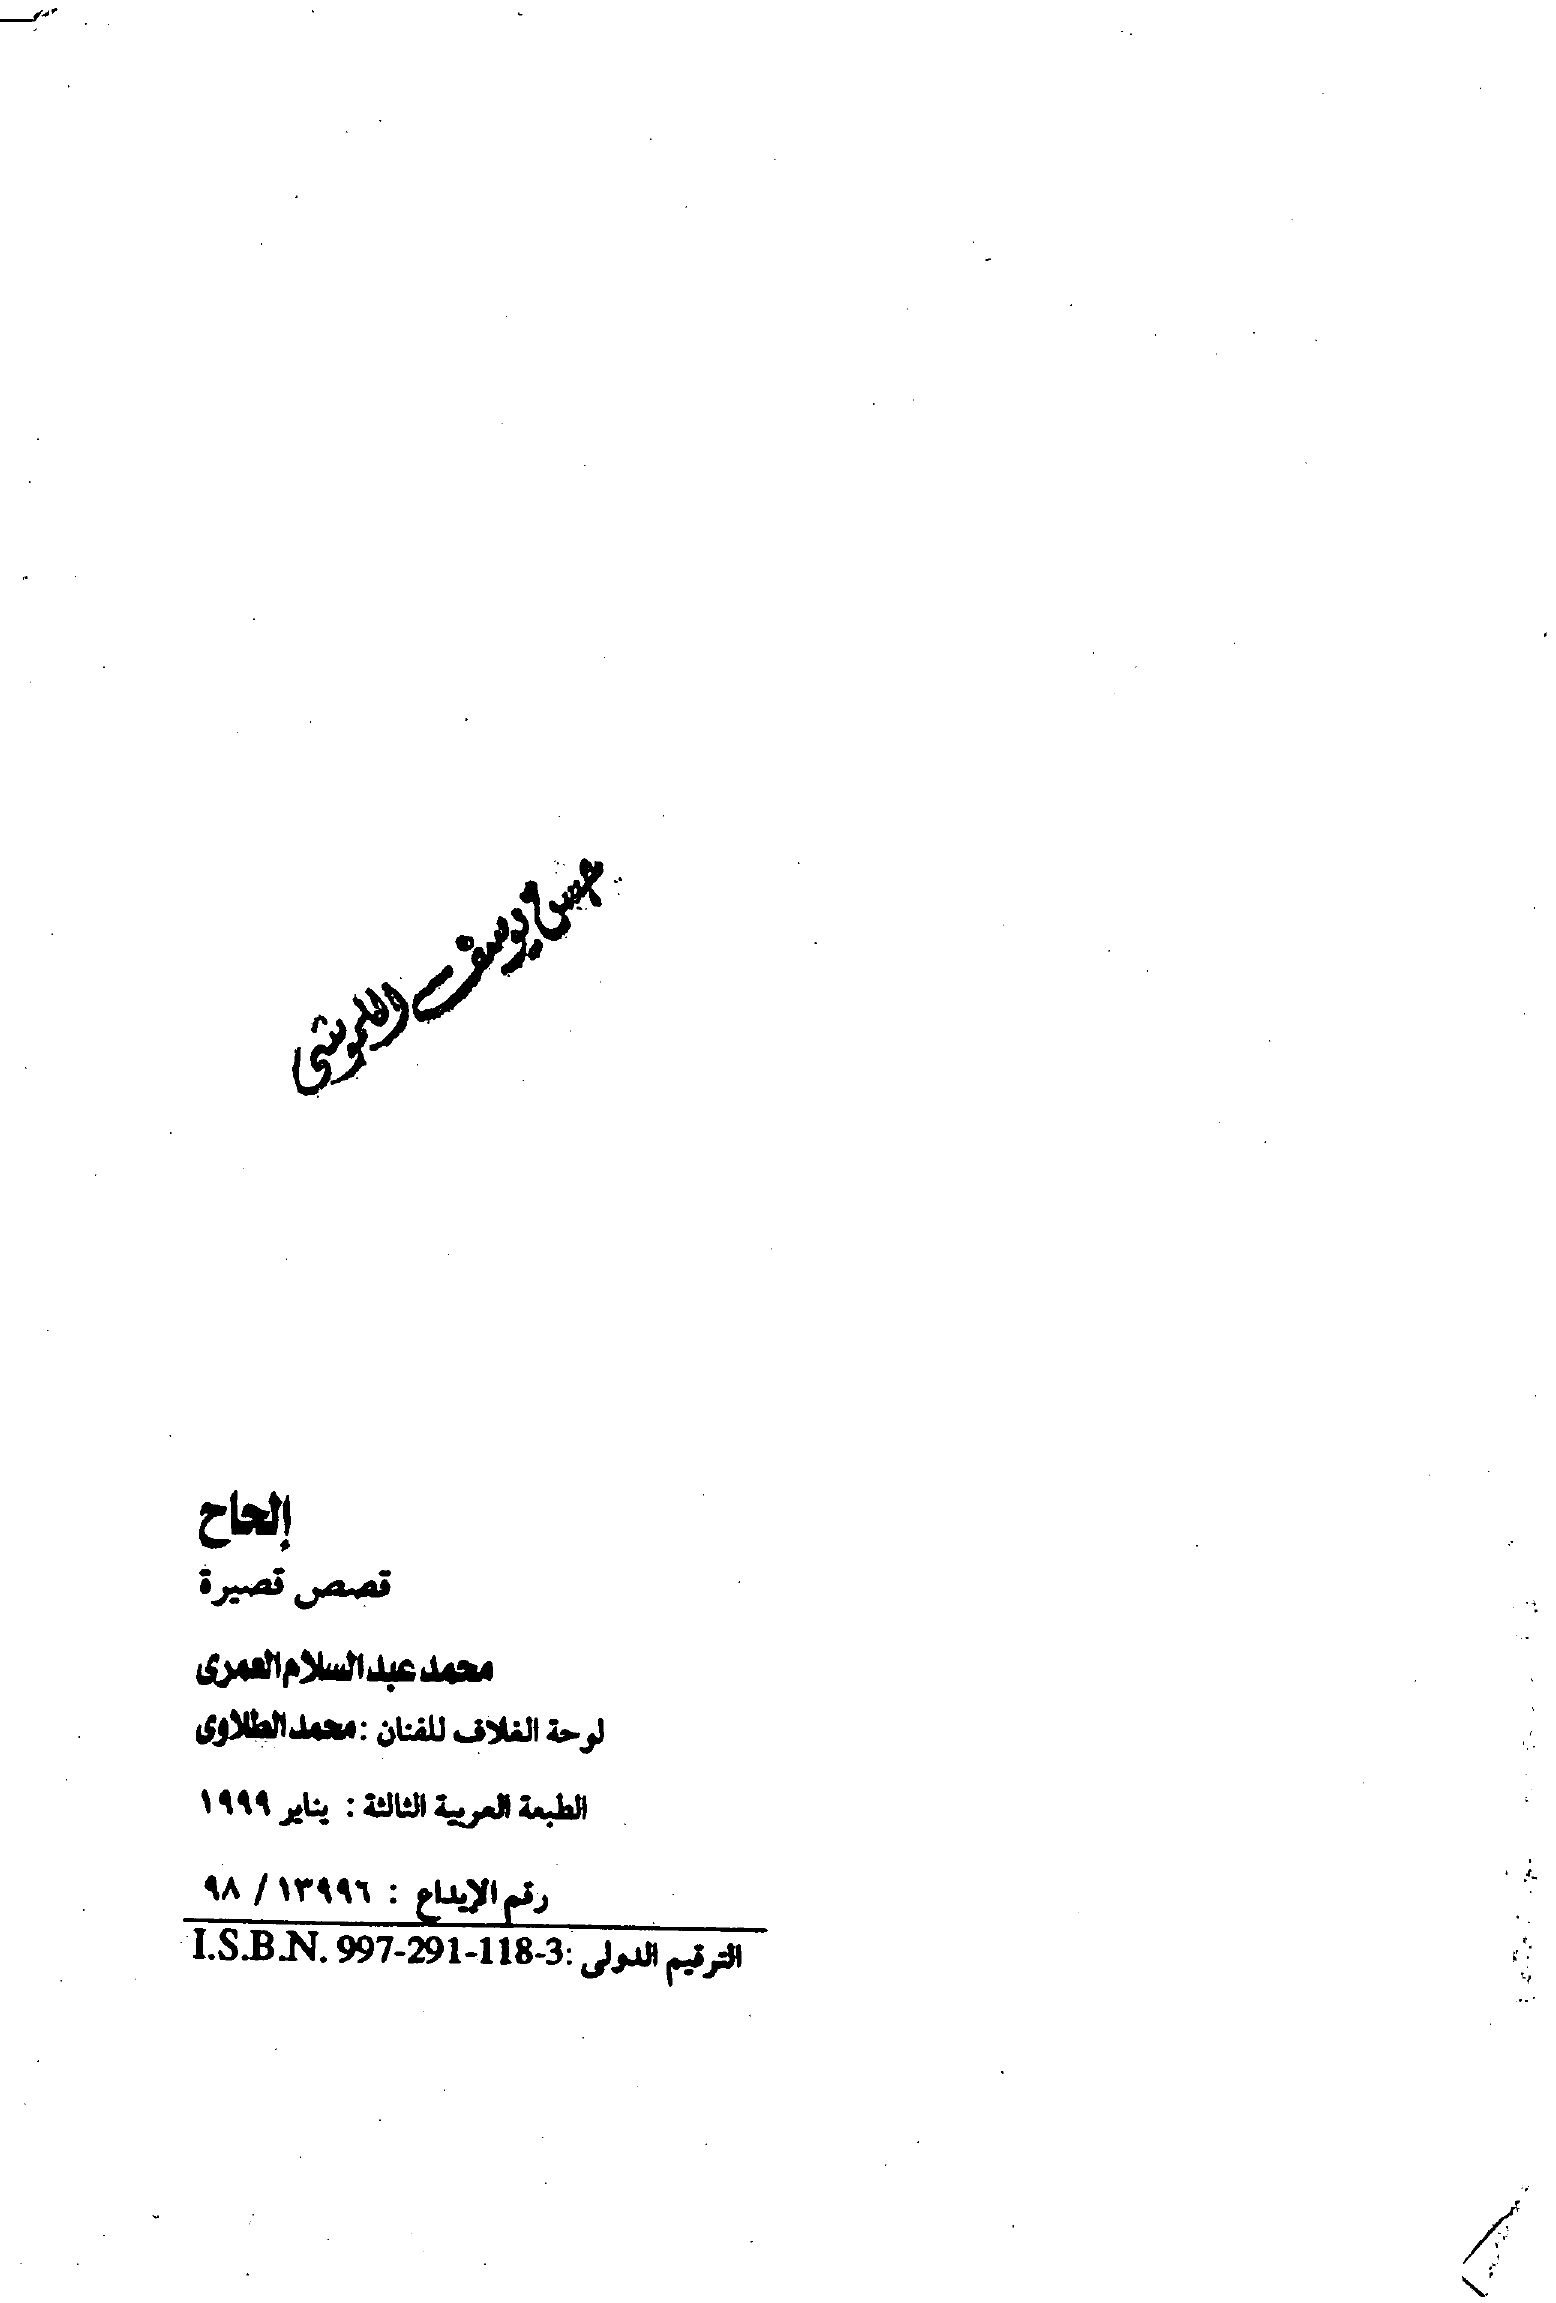 حسن يوسف
إلحاح
قصص قصيرة
محمد عبد السلام العمرى
لوحة الغلاف للفنان : محمد الطلاوى
الطبعة العربية الثالثة : يناير ١٩٩٩
رقم الإيداع : ١٣٩٩٦ / ٩٨
الترقيم الدولى : I.S.B.N. 997-291-118-3